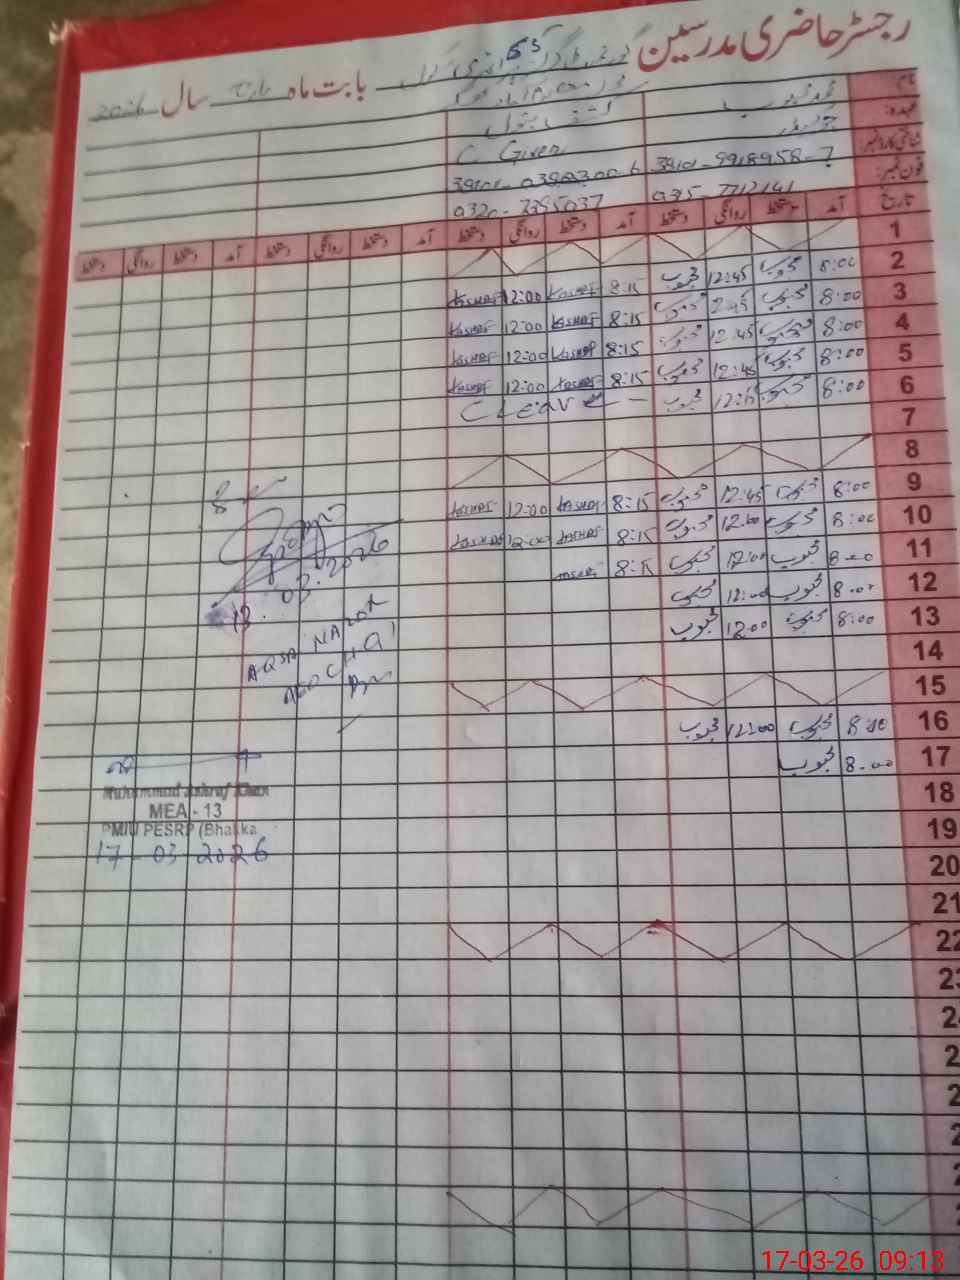 رجسٹر حاضری مدرسین
بابت ماہ مارچ سال 2026
نام
عہدہ:
شناختی کارڈ نمبر:
فون نمبر:
C. Given
38101-9918958-7
0315-7712141
0320-7395037
تاریخ آمد دستخط روانگی دستخط آمد دستخط روانگی دستخط آمد دستخط روانگی دستخط آمد دستخط روانگی دستخط
1
2 8:00 محبوب 12:45 محبوب 8:15 KASHAF 12:00 KASHAF
3 8:00 محبوب محبوب 8:15 KASHAF 12:00 KASHAF
4 8:00 محبوب 12:45 محبوب 8:15 KASHAF 12:00 KASHAF
5 8:00 محبوب 12:45 محبوب 8:15 KASHAF 12:00 KASHAF
6 8:00 محبوب محبوب
7
8
9 8:00 محبوب 12:45 محبوب 8:15 KASHAF 12:00 KASHAF
10 8:00 محبوب 12:00 محبوب 8:15 KASHAF 12:00 KASHAF
11 8:00 محبوب 12:00 محبوب 8:15
12 8:00 محبوب 12:00 محبوب
13 8:00 محبوب 12:00 محبوب
14
15
16 8:00 محبوب 12:00 محبوب
17 8:00 محبوب
18
19
20
21
22
03.2026
AQSA NAZAR
Muhammad Ashraf Khan
MEA - 13
PMIU PESRP (Bhakka
17-03-2026
17-03-26 09:13